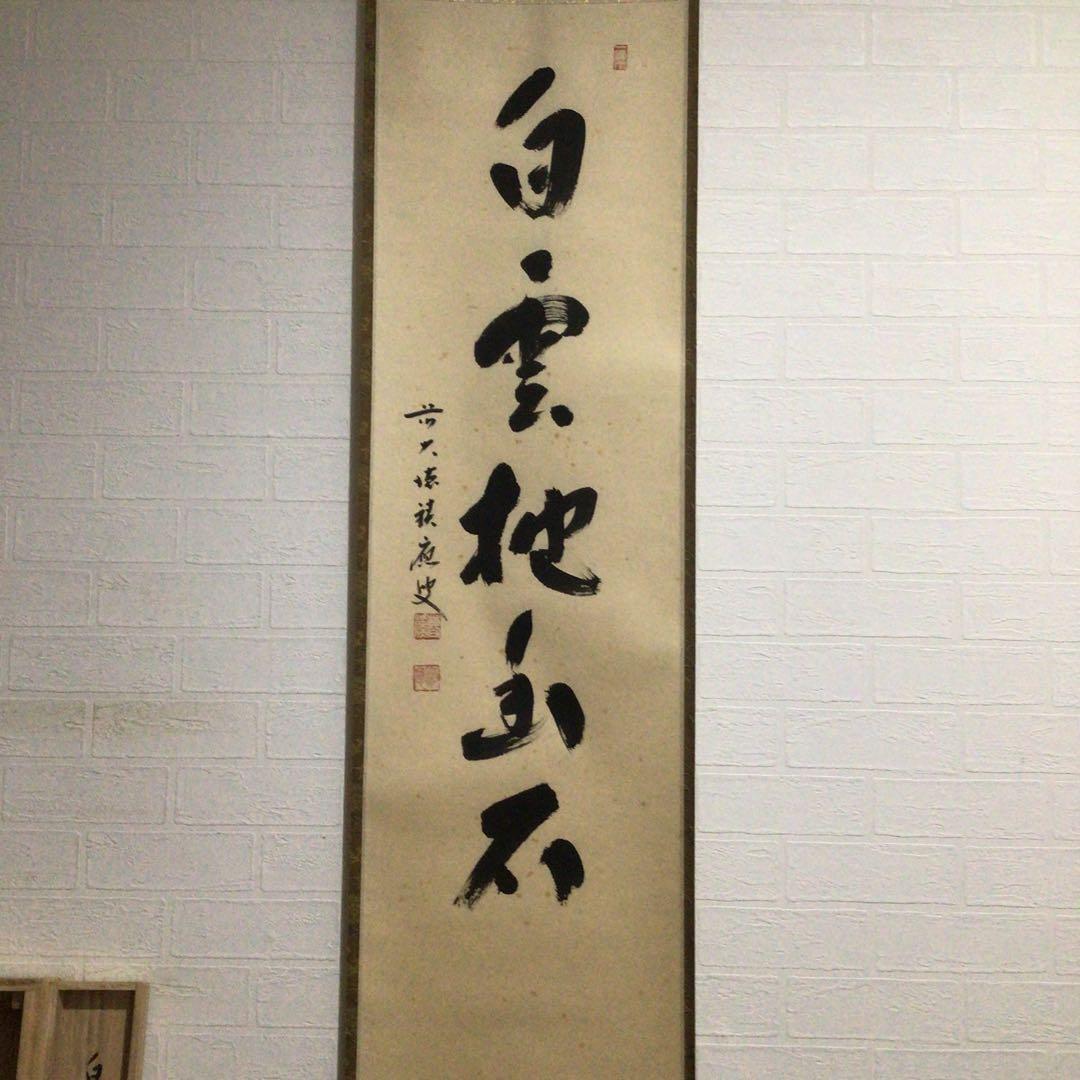 白雲抱幽石
前大徳積應叟
白